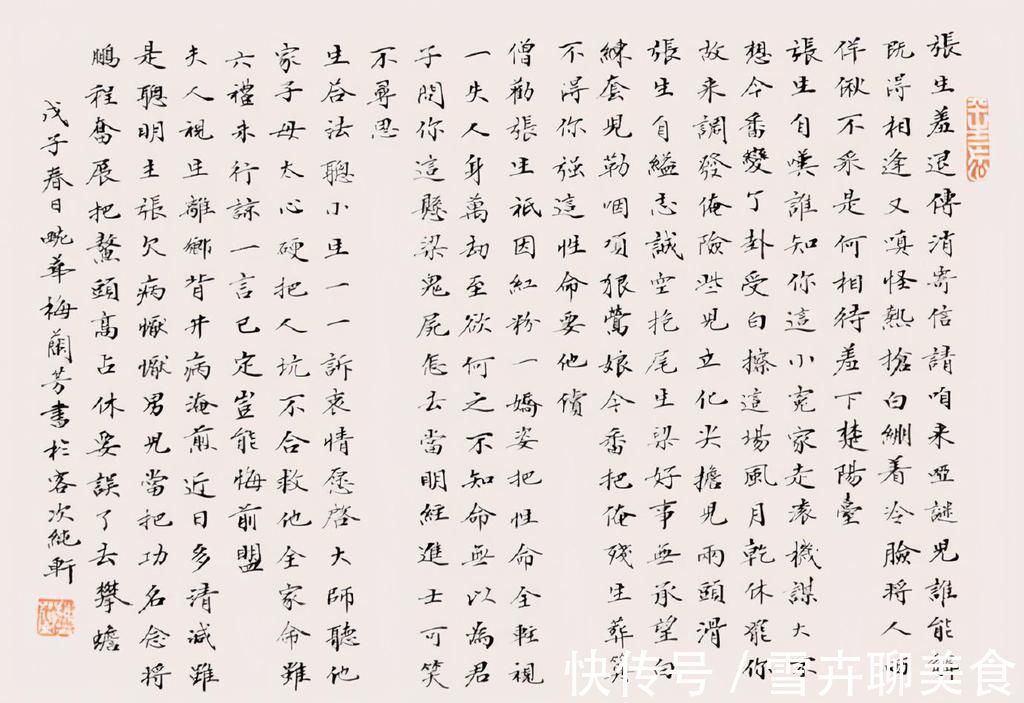 張生羞退傳消寄信請咱來啞謎兒誰能解
既得相逢又嗔怪熱搶白綳着冷臉將人
佯偢不採是何相待羞下楚陽臺
張生自嘆誰知你這小冤家走滾機謀大不
想今番變了卦受白擦這場風月乾休罷你
故來調發俺險些兒立化尖擔兒兩頭滑
張生自縊志誠空抱尾生梁好事無承望白
練套兒勒咽項狠鶯娘今番把俺殘生葬
不得你強這性命要他償
僧勸張生祇因紅粉一嬌姿把性命全輕視
一失人身萬劫至欲何之不知命無以為君
子問你這懸梁鬼屍怎去當明經進士可笑
不尋思
生答法聰小生一一訴衷情愿啓大師聽他
家子母太心硬把人坑不合救他全家命雖
六禮未行諒一言已定豈能悔前盟
夫人視生離鄉背井病淹煎近日多清減雖
是聰明主張欠病懨懨男兒當把功名念將
鵬程奮展把鰲頭高占休要誤了去攀蟾
戊子春日畹華梅蘭芳書於客次純軒
快传号/雪卉聊美食